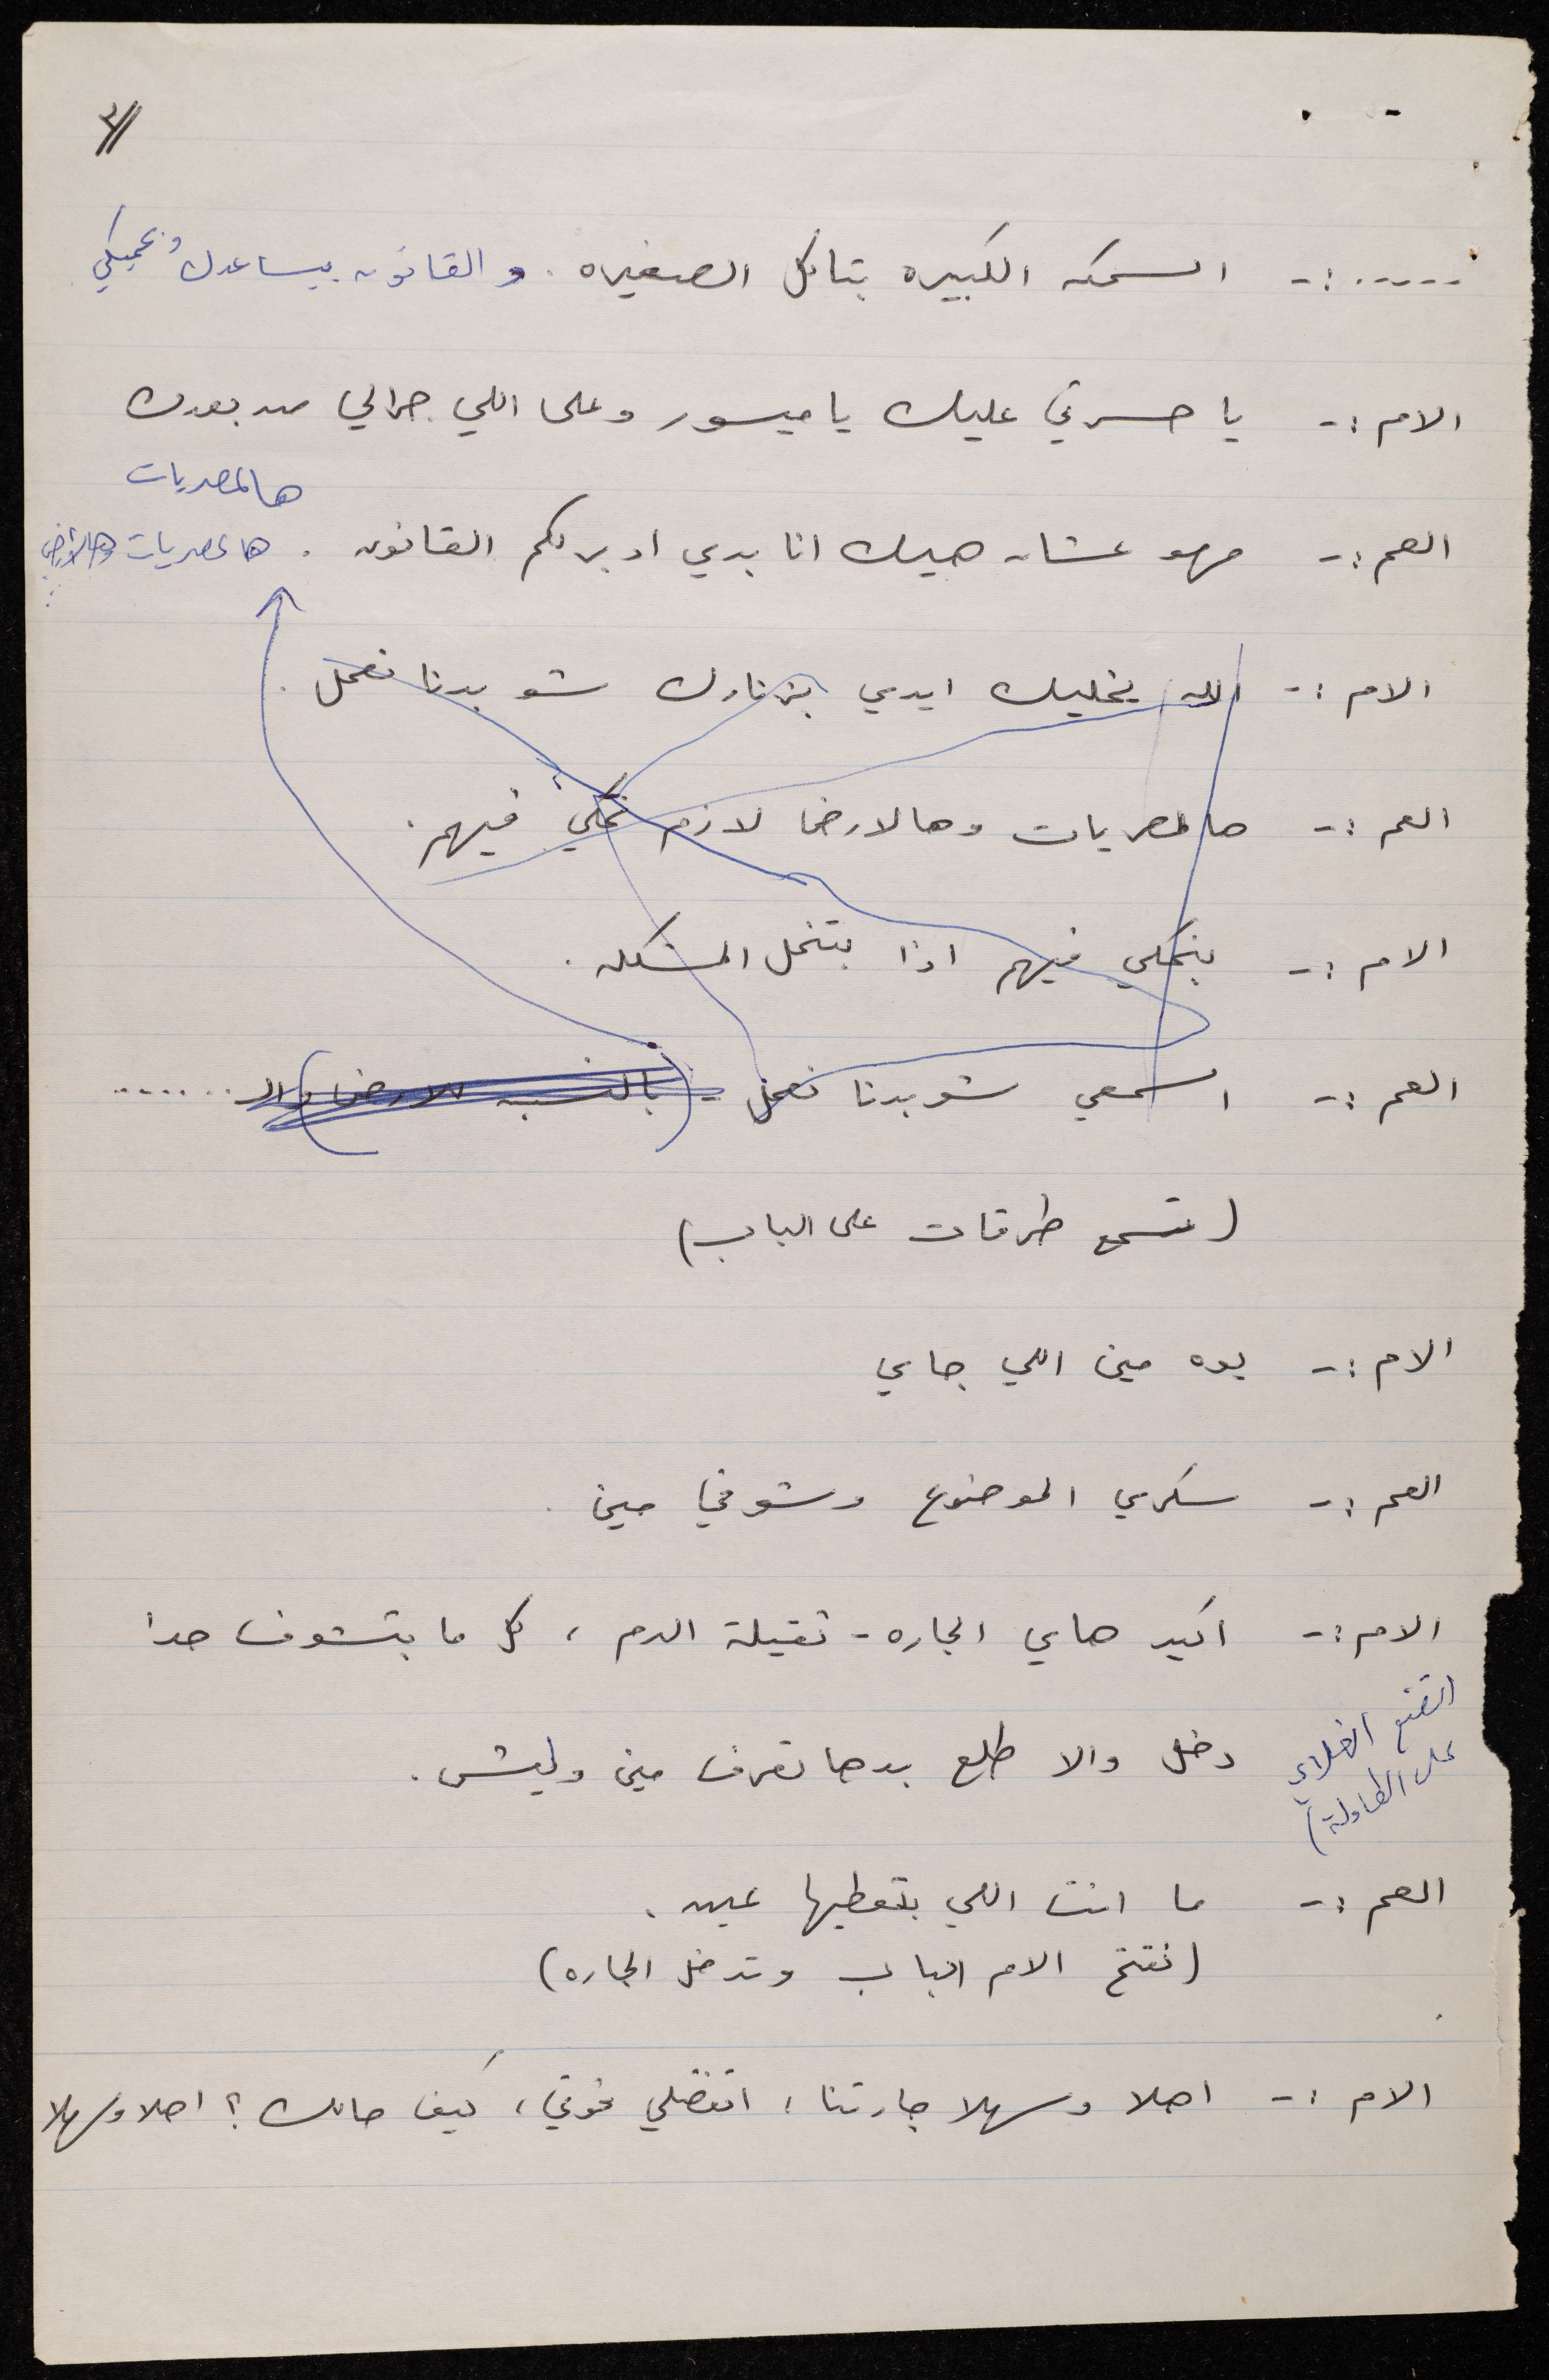 ٢//
.......:- السمكه الكبيره بتاكل الصغيره . و القانون بيساعدك وبيحميكي .
الام :- يا حسرتي عليك يا ميسور وعلى اللي جرالي من بعدك
هالمصريات
العم :- مهو عشان هيك انا بدي ادبر لكم القانون . هالمصريات وهالأرض
الام :- الله يخليك ايدي بزنارك شو بدنا نعمل .
العم :- هالمصريات وهالارض لازم نحكي فيهم .
الام :- بنحكي فيهم اذا بتنحل المشكله .
العم :- اسمعي شو بدنا نعمل - (بالنسبه للارض) والـ .......
(تسمع طرقات على الباب)
الام :- يوه مين اللي جاي
العم :- سكري الموضوع وشوفي مين .
الام :- اكيد هاي الجاره - ثقيلة الدم ، كل ما بتشوف حدا
دخل والا طلع بدها تعرف مين وليش .
(تضع الغلاي
على الطاولة)
العم :- ما انت اللي بتعطيها عين .
(تفتح الام الباب وتدخل الجاره)
الام :- اهلا وسهلا جارتنا ، اتفضلي فوتي ، كيف حالك ؟ اهلا وسهلا